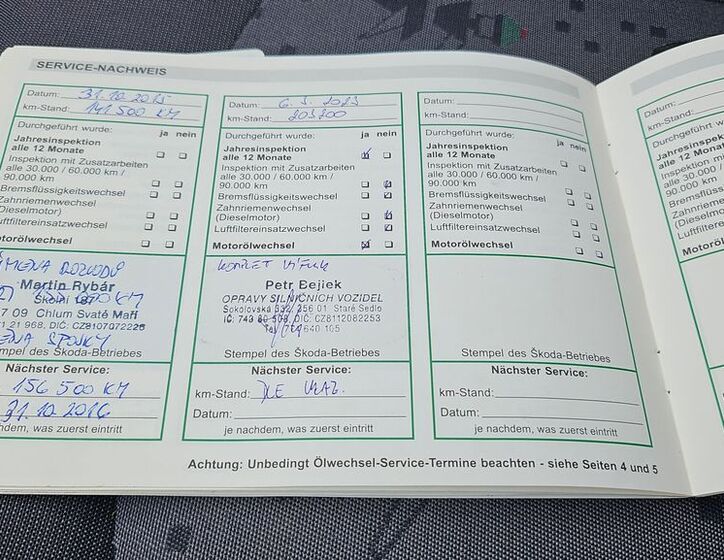 SERVICE-NACHWEIS
Datum: 31.10.2015
km-Stand: 141 500 KM
Durchgeführt wurde: ja nein
Jahresinspektion
alle 12 Monate
Inspektion mit Zusatzarbeiten
alle 30.000 / 60.000 km /
90.000 km
Bremsflüssigkeitswechsel
Zahnriemenwechsel
(Dieselmotor)
Luftfiltereinsatzwechsel
Motorölwechsel
ROZVODŮ
Martin Rybár
Školní 187
7 09 Chlum Svaté Maří
21 968, DIČ: CZ8107072226
SPOJKY
tempel des Škoda-Betriebes
Nächster Service:
156 500 KM
31.10.2016
hdem, was zuerst eintritt
Datum: 2023
km-Stand: 203200
Durchgeführt wurde: ja nein
Jahresinspektion
alle 12 Monate
Inspektion mit Zusatzarbeiten
alle 30.000 / 60.000 km /
90.000 km
Bremsflüssigkeitswechsel
Zahnriemenwechsel
(Dieselmotor)
Luftfiltereinsatzwechsel
Motorölwechsel
Petr Bejiek
OPRAVY SILNIČNÍCH VOZIDEL
Sokolovská 332, 356 01 Staré Sedlo
IČ: 743 60 506, DIČ: CZ8112082253
640 105
Stempel des Škoda-Betriebes
Nächster Service:
km-Stand: DLE UKAZ.
Datum:
je nachdem, was zuerst eintritt
Datum:
km-Stand:
Durchgeführt wurde: ja nein
Jahresinspektion
alle 12 Monate
Inspektion mit Zusatzarbeiten
alle 30.000 / 60.000 km /
90.000 km
Bremsflüssigkeitswechsel
Zahnriemenwechsel
(Dieselmotor)
Luftfiltereinsatzwechsel
Motorölwechsel
Stempel des Škoda-Betriebes
Nächster Service:
km-Stand:
Datum:
je nachdem, was zuerst eintritt
Achtung: Unbedingt Ölwechsel-Service-Termine beachten - siehe Seiten 4 und 5
Datum:
km-Stand:
Durchgeführt
Jahresinspe
alle 12 Mona
Inspektion m
alle 30.000 /
90.000 km
Bremsflüss
Zahnrieme
(Dieselmo
Luftfilterei
Motorölw